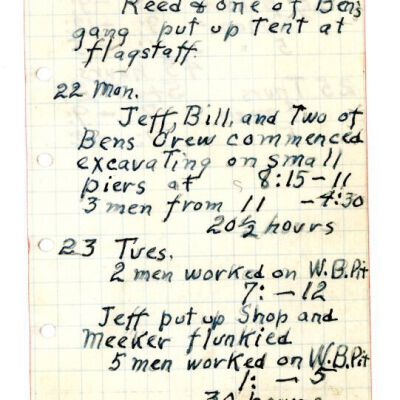 Reed & one of Ben's
gang put up tent at
flagstaff
22 Mon.
Jeff, Bill, and Two of
Bens Crew commenced
excavating on small
piers at 8:15-11
3 men from 11 -4:30
20½ hours
23 Tues.
2 men worked on W.B.Pit
7: - 12
Jeff put up Shop and
Meeker flunkied
5 men worked on W.B.Pit
1: - 5
30 hours